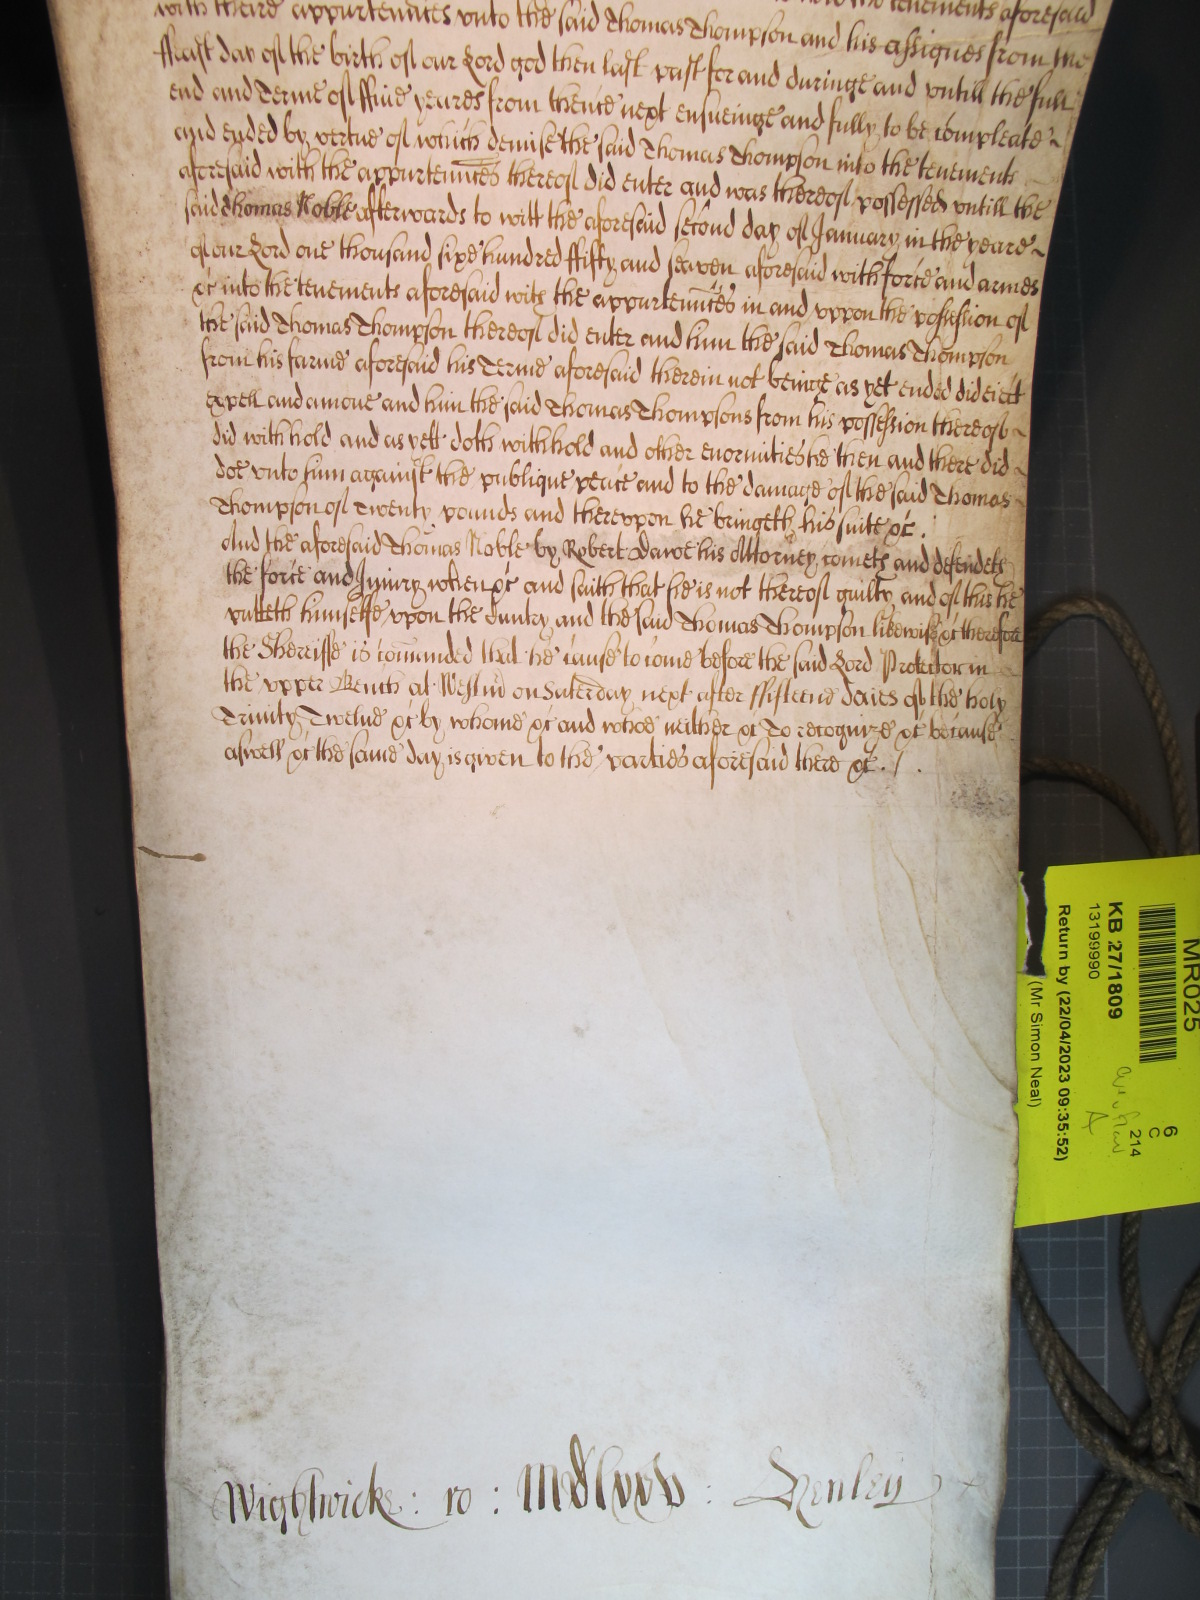 tenements aforesaid
with theire appurtennces unto the said Thomas Thompson and his assignes from the
ffeast day of the birth of our Lord god then last past for and duringe and untill the full
end and Terme of ffive yeares from thence next ensueinge and fully to be compleate
and ended by vertue of which demise the said Thomas Thompson into the tenements
aforesaid with the appurtennces thereof did enter and was thereof possessed untill the
said Thomas Noble afterwards to witt the aforesaid second day of January in the yeare
of our Lord one thousand sixe hundred ffifty and seaven aforesaid with force and armes
&c into the tenements aforesaid with the appurtennces in and uppon the possession of
the said Thomas Thompson thereof did enter and him the said Thomas Thompson
from his farme aforesaid his Terme aforesaid therein not beinge as yet ended did eiect
expell and amove and him the said Thomas Thompsons from his possession thereof
did withhold and as yett doth withhold and other enormities he then and there did
doe unto him against the publique peace and to the damage of the said Thomas
Thompson of Twenty pounds and thereupon he bringeth his suite &c.
And the aforesaid Thomas Noble by Robert Dawe his Attorney comets and defendets
the force and Iniury when &c and saith that he is not thereof guilty and of this he
putteth himselfe upon the Cuntry and the said Thomas Thompson likewise &c therefore
the Sheriffe is comanded that he cause to come before the said Lord Protector in
the upper Bench at Westmr on Saterday next after ffifteene daies of the holy
Trinity Twelve &c by whome &c and whoe neither &c To recognize &c because
aswell &c the same day is given to the parties aforesaid there &c. / .
Wightwicke : ro : : Henley
MR025
KB 27/1809
13199990
6
C
214
A
Return by (22/04/2023 09:35:52)
(Mr Simon Neal)